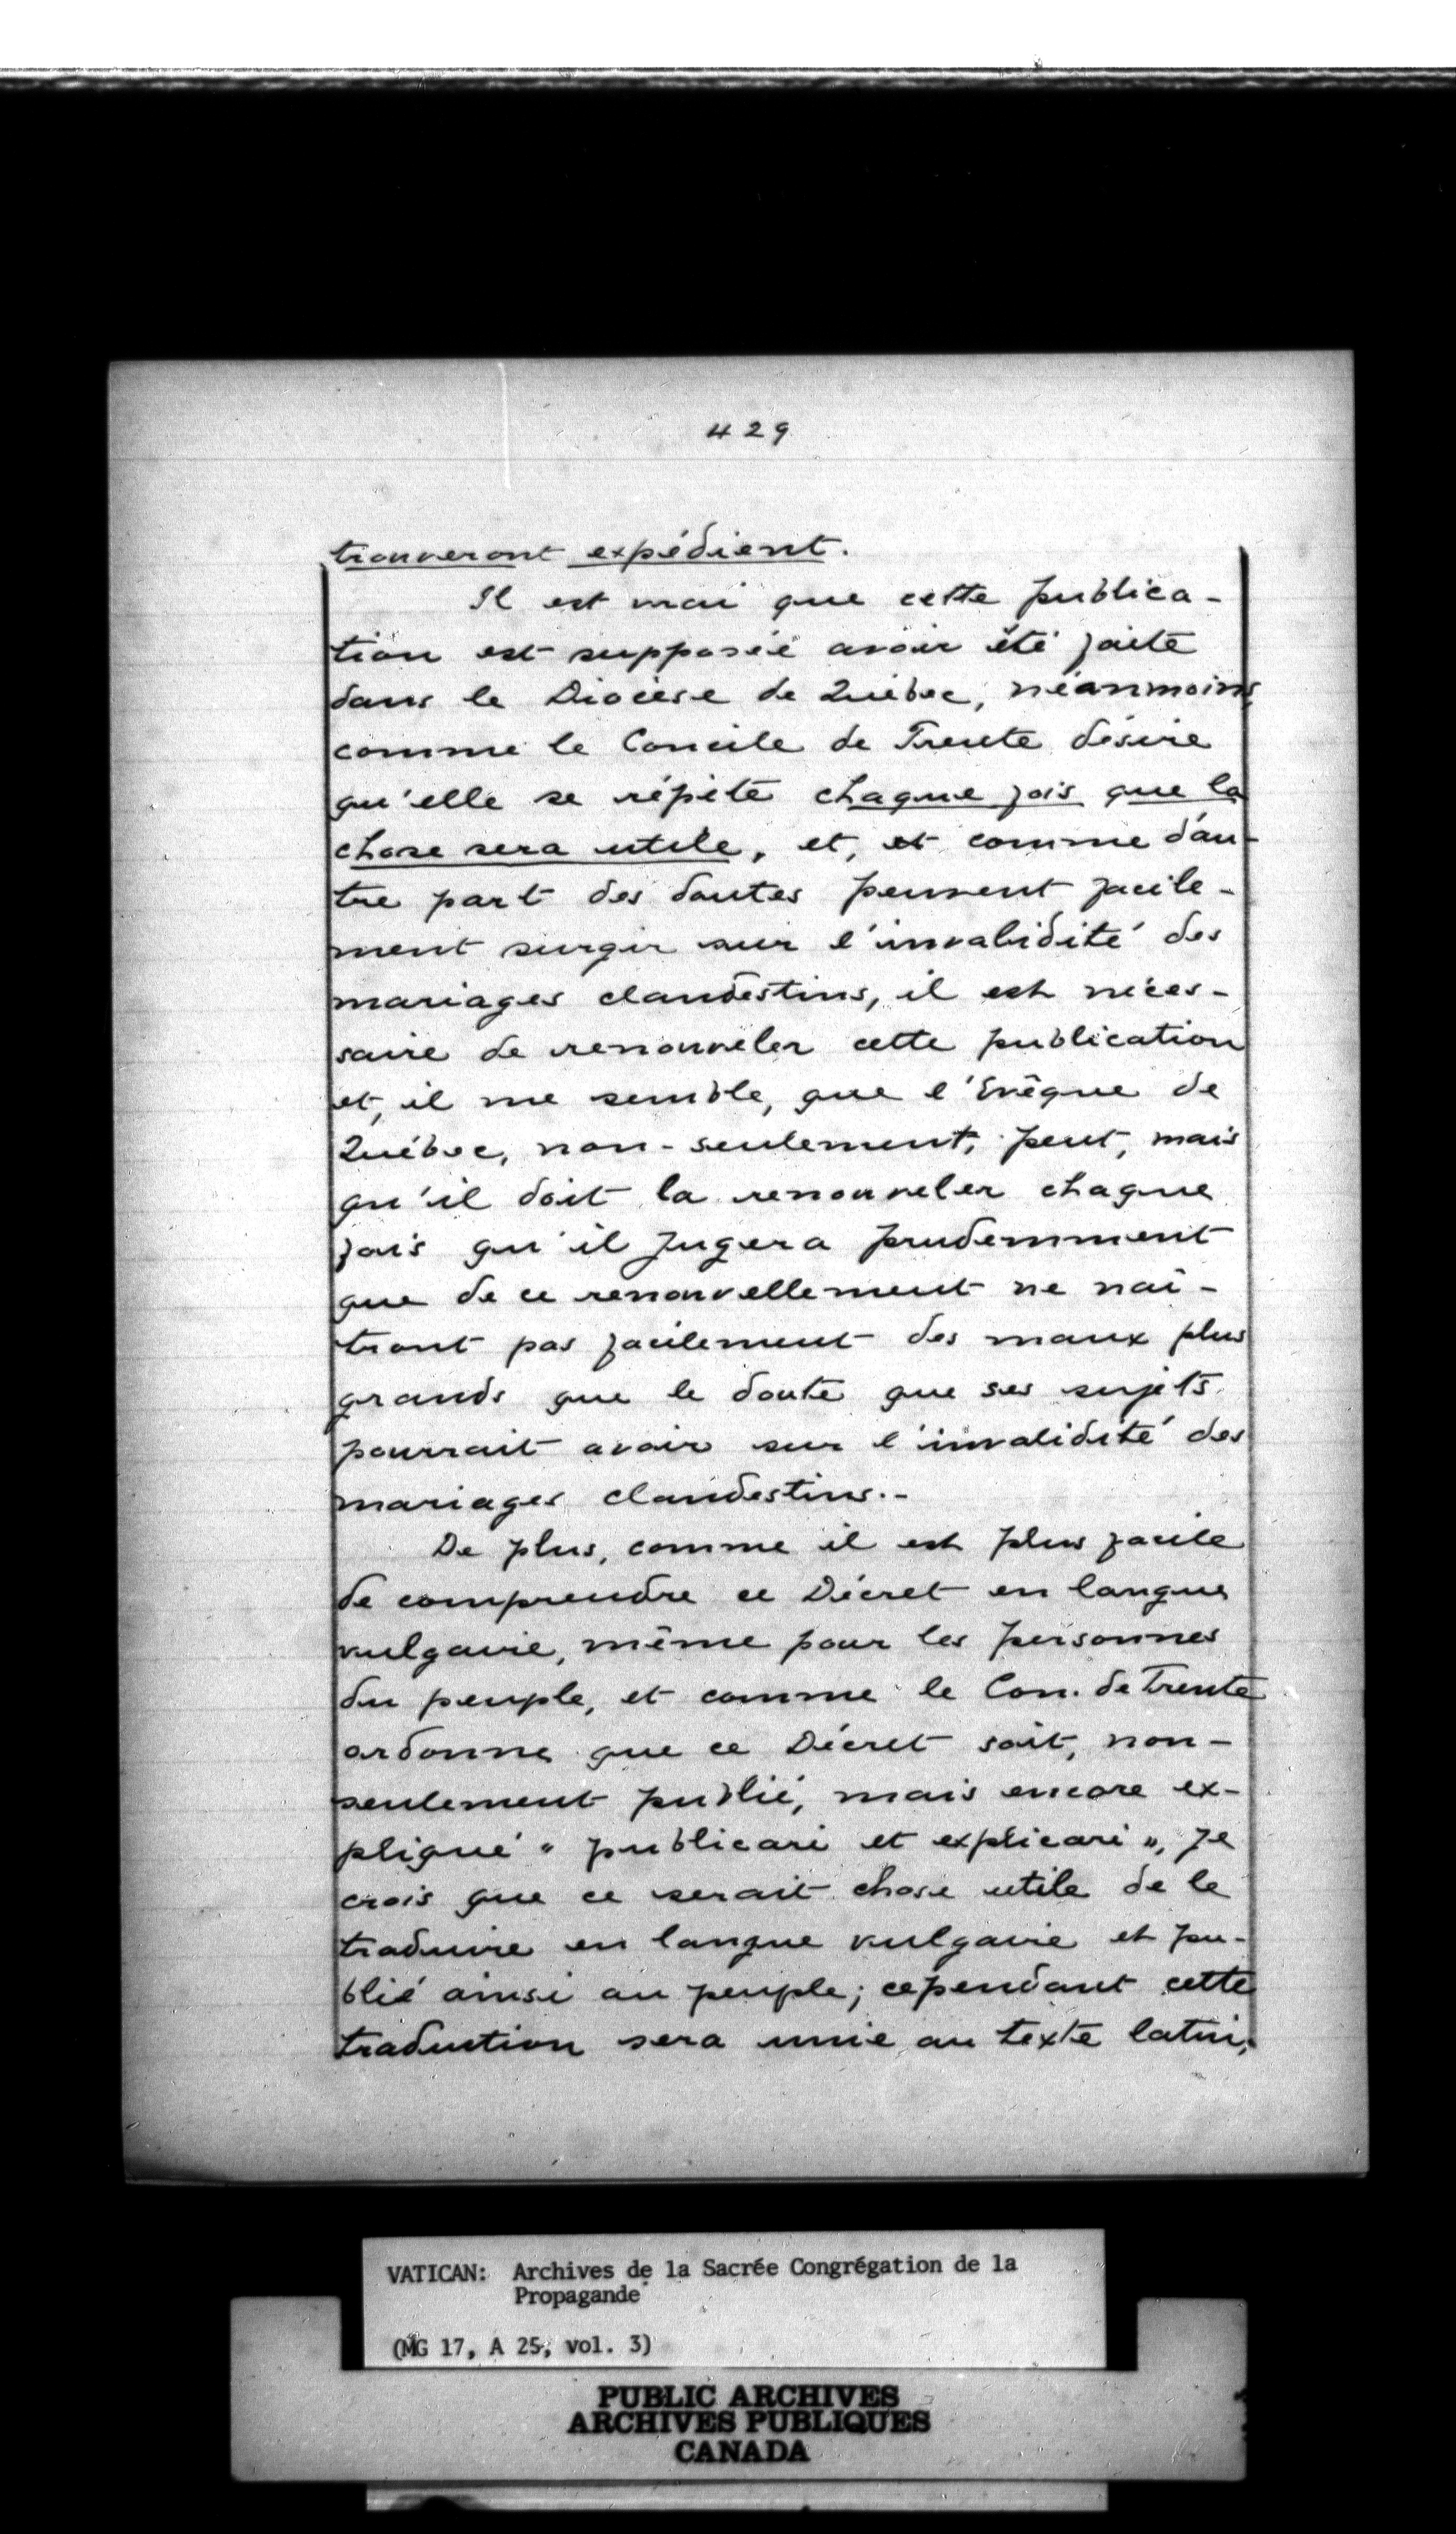 429
trouveront expédient.
Il est vrai que cette publica-
tion est supposée avoir été faite
dans le Diocèse de Québec, néanmoins
comme le Concile de Trente désire
qu'elle se répète chaque fois que la
chose sera utile, et, et comme d'au-
tre part des doutes peuvent facile-
ment surgir sur l'invalidité des
mariages clandestins, il est néces-
saire de renouveler cette publication
et, il me semble, que l'Evêque de
Québec, non-seulement, peut, mais
qu'il doit la renouveler chaque
fois qu'il jugera prudemment
que de ce renouvellement ne naî-
tront pas facilement des maux plus
grands que le doute que ses sujets
pourrait avoir sur l'invalidité des
mariages clandestins.-
De plus, comme il est plus facile
de comprendre ce Décret en langue
vulgaire, même pour les personnes
du peuple, et comme le Con. de Trente
ordonne que ce Décret soit, non-
seulement publié, mais encore ex-
pliqué « publicari et explicari », je
crois que ce serait chose utile de le
traduire en langue vulgaire et pu-
blié ainsi au peuple; cependant cette
traduction sera unie au texte latin,
VATICAN: Archives de la Sacrée Congrégation de la
Propagande
(MG 17, A 25, vol. 3)
PUBLIC ARCHIVES
ARCHIVES PUBLIQUES
CANADA